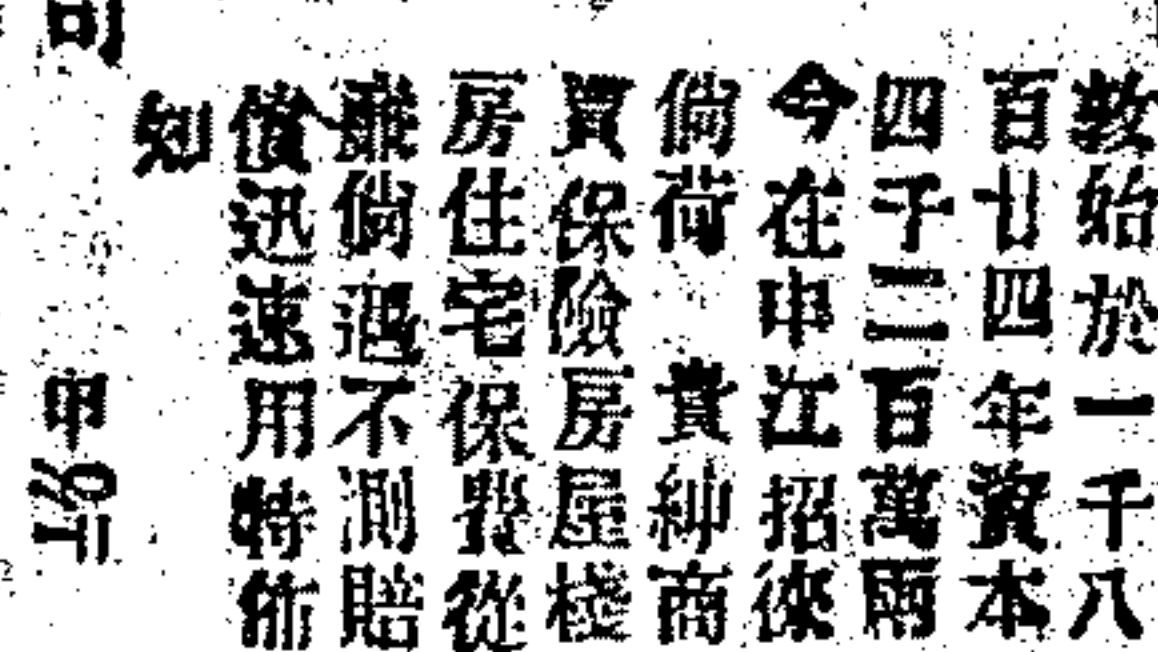 敎始於一千八
百廿四年資本
四千二百萬兩
今在申江招徠
倘荷 貴紳商
買保險房屋棧
房住宅保費從
嚴倘遇不測賠
償迅速用特佈
司 甲